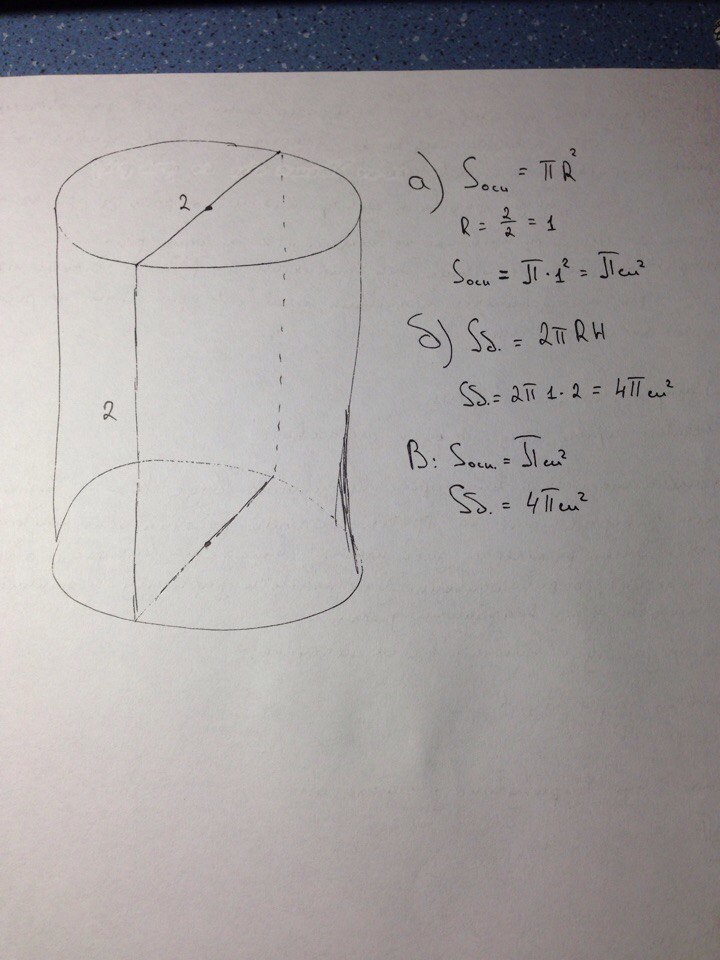 2
2
а) Sосн = πR²
R = 2/2 = 1
Sосн = π·1² = π см²
б) Sб. = 2πRH
Sб. = 2π 1·2 = 4π см²
В: Sосн. = π см²
Sб. = 4π см²